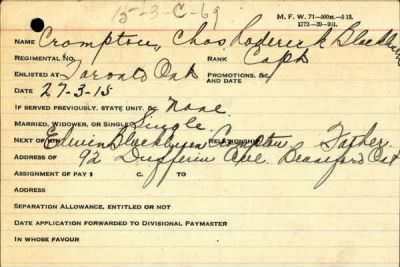 15-3-C-69
M. F. W. 71—500M.—5 15.
1772—39—901.
NAME Crompton, Chas. Roderick Blackburn
REGIMENTAL NO. RANK Capt
ENLISTED AT Toronto Oak PROMOTIONS, &C. AND DATE
DATE 27-3-15
IF SERVED PREVIOUSLY, STATE UNIT, &C. None
MARRIED, WIDOWER, OR SINGLE Single
NEXT OF KIN Edwin Blackburn Crompton RELATIONSHIP Father
ADDRESS OF 92 Dufferin Ave. Brantford Ont
ASSIGNMENT OF PAY $ C. TO
ADDRESS
SEPARATION ALLOWANCE, ENTITLED OR NOT
DATE APPLICATION FORWARDED TO DIVISIONAL PAYMASTER
IN WHOSE FAVOUR